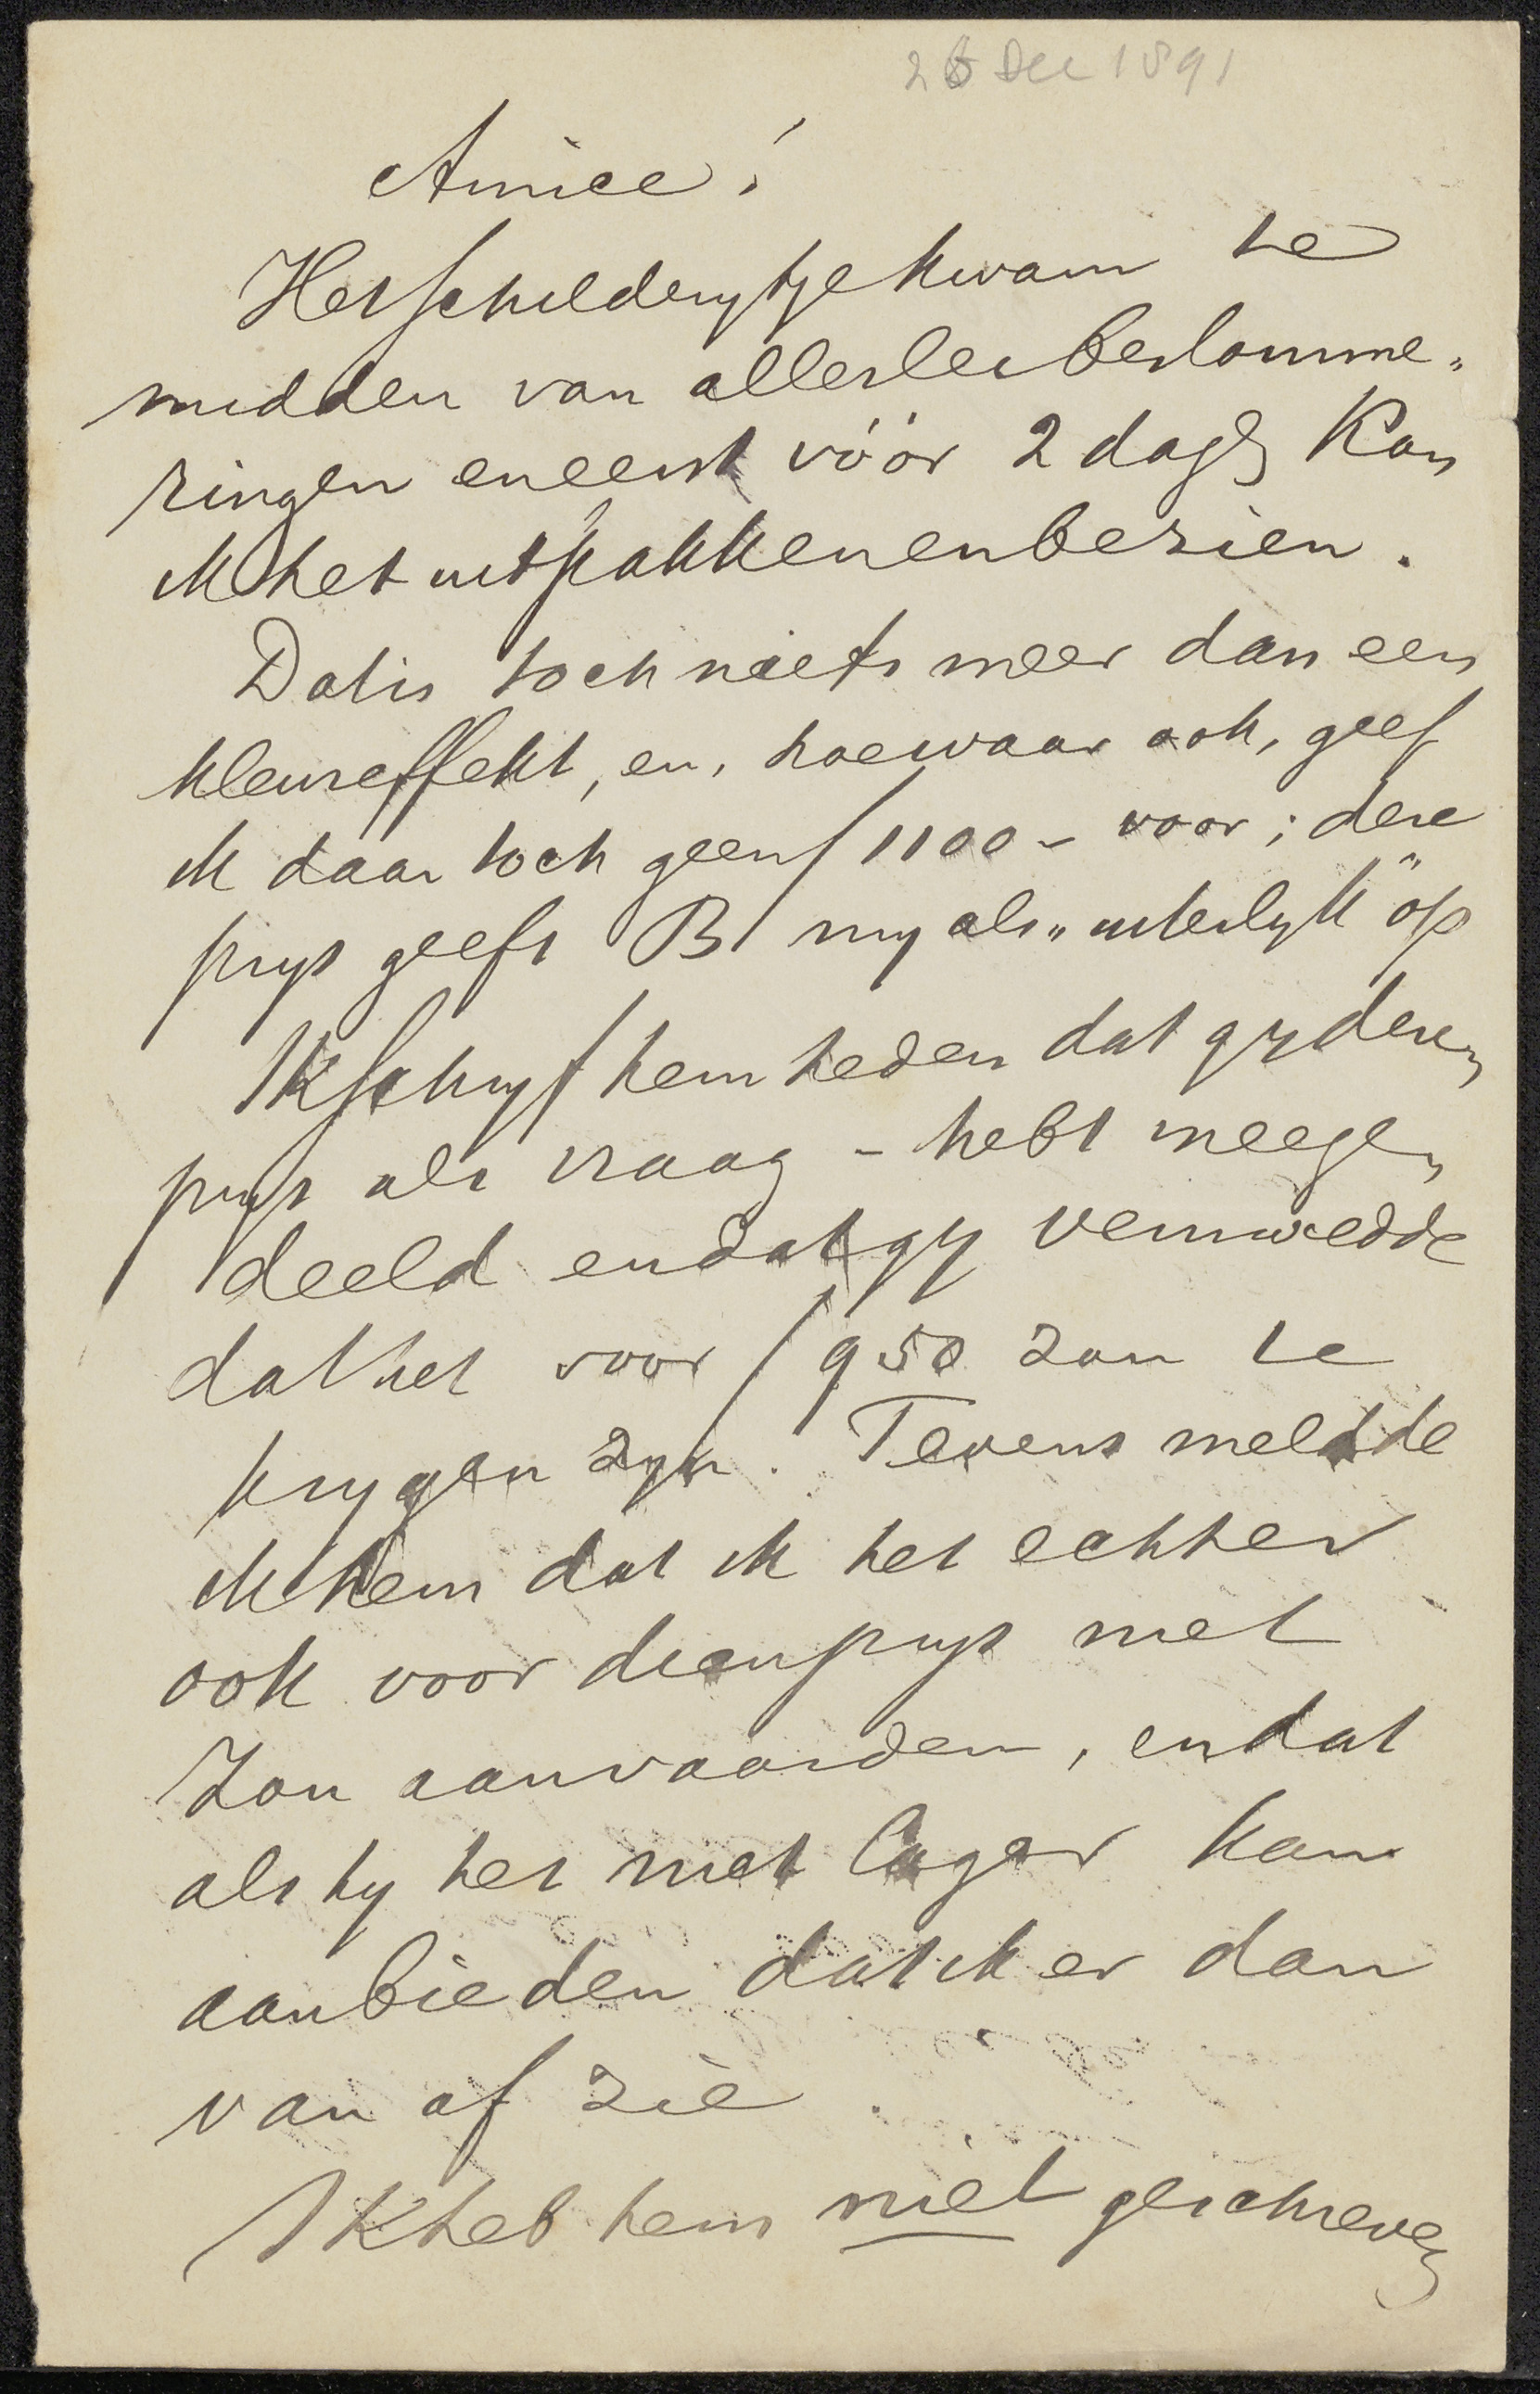 26 Dec 1891
Amice!
Het schilderijtje kwam te
midden van allerlei beslomme„
ringen en eerst vóór 2 dagen kon
ik het uitpakken en bezien.
Dat is toch niets meer dan een
kleureffekt, en, hoe waar ook, geef
ik daar toch geen f 1100 - voor; deze
prijs geeft B mij als „uiterlijk" op
Ik schrijf hem heden dat gij dezen
prijs als vraag - hebt meege„
deeld en dat gij vermoedde
dat het voor f 950 zou te
krijgen zijn. Tevens meldde
ik hem dat ik het echter
ook voor dien prijs niet
zou aanvaarden, en dat
als hij het niet lager kan
aanbieden dat ik er dan
van af zie.
Ik heb hem niet geschreven